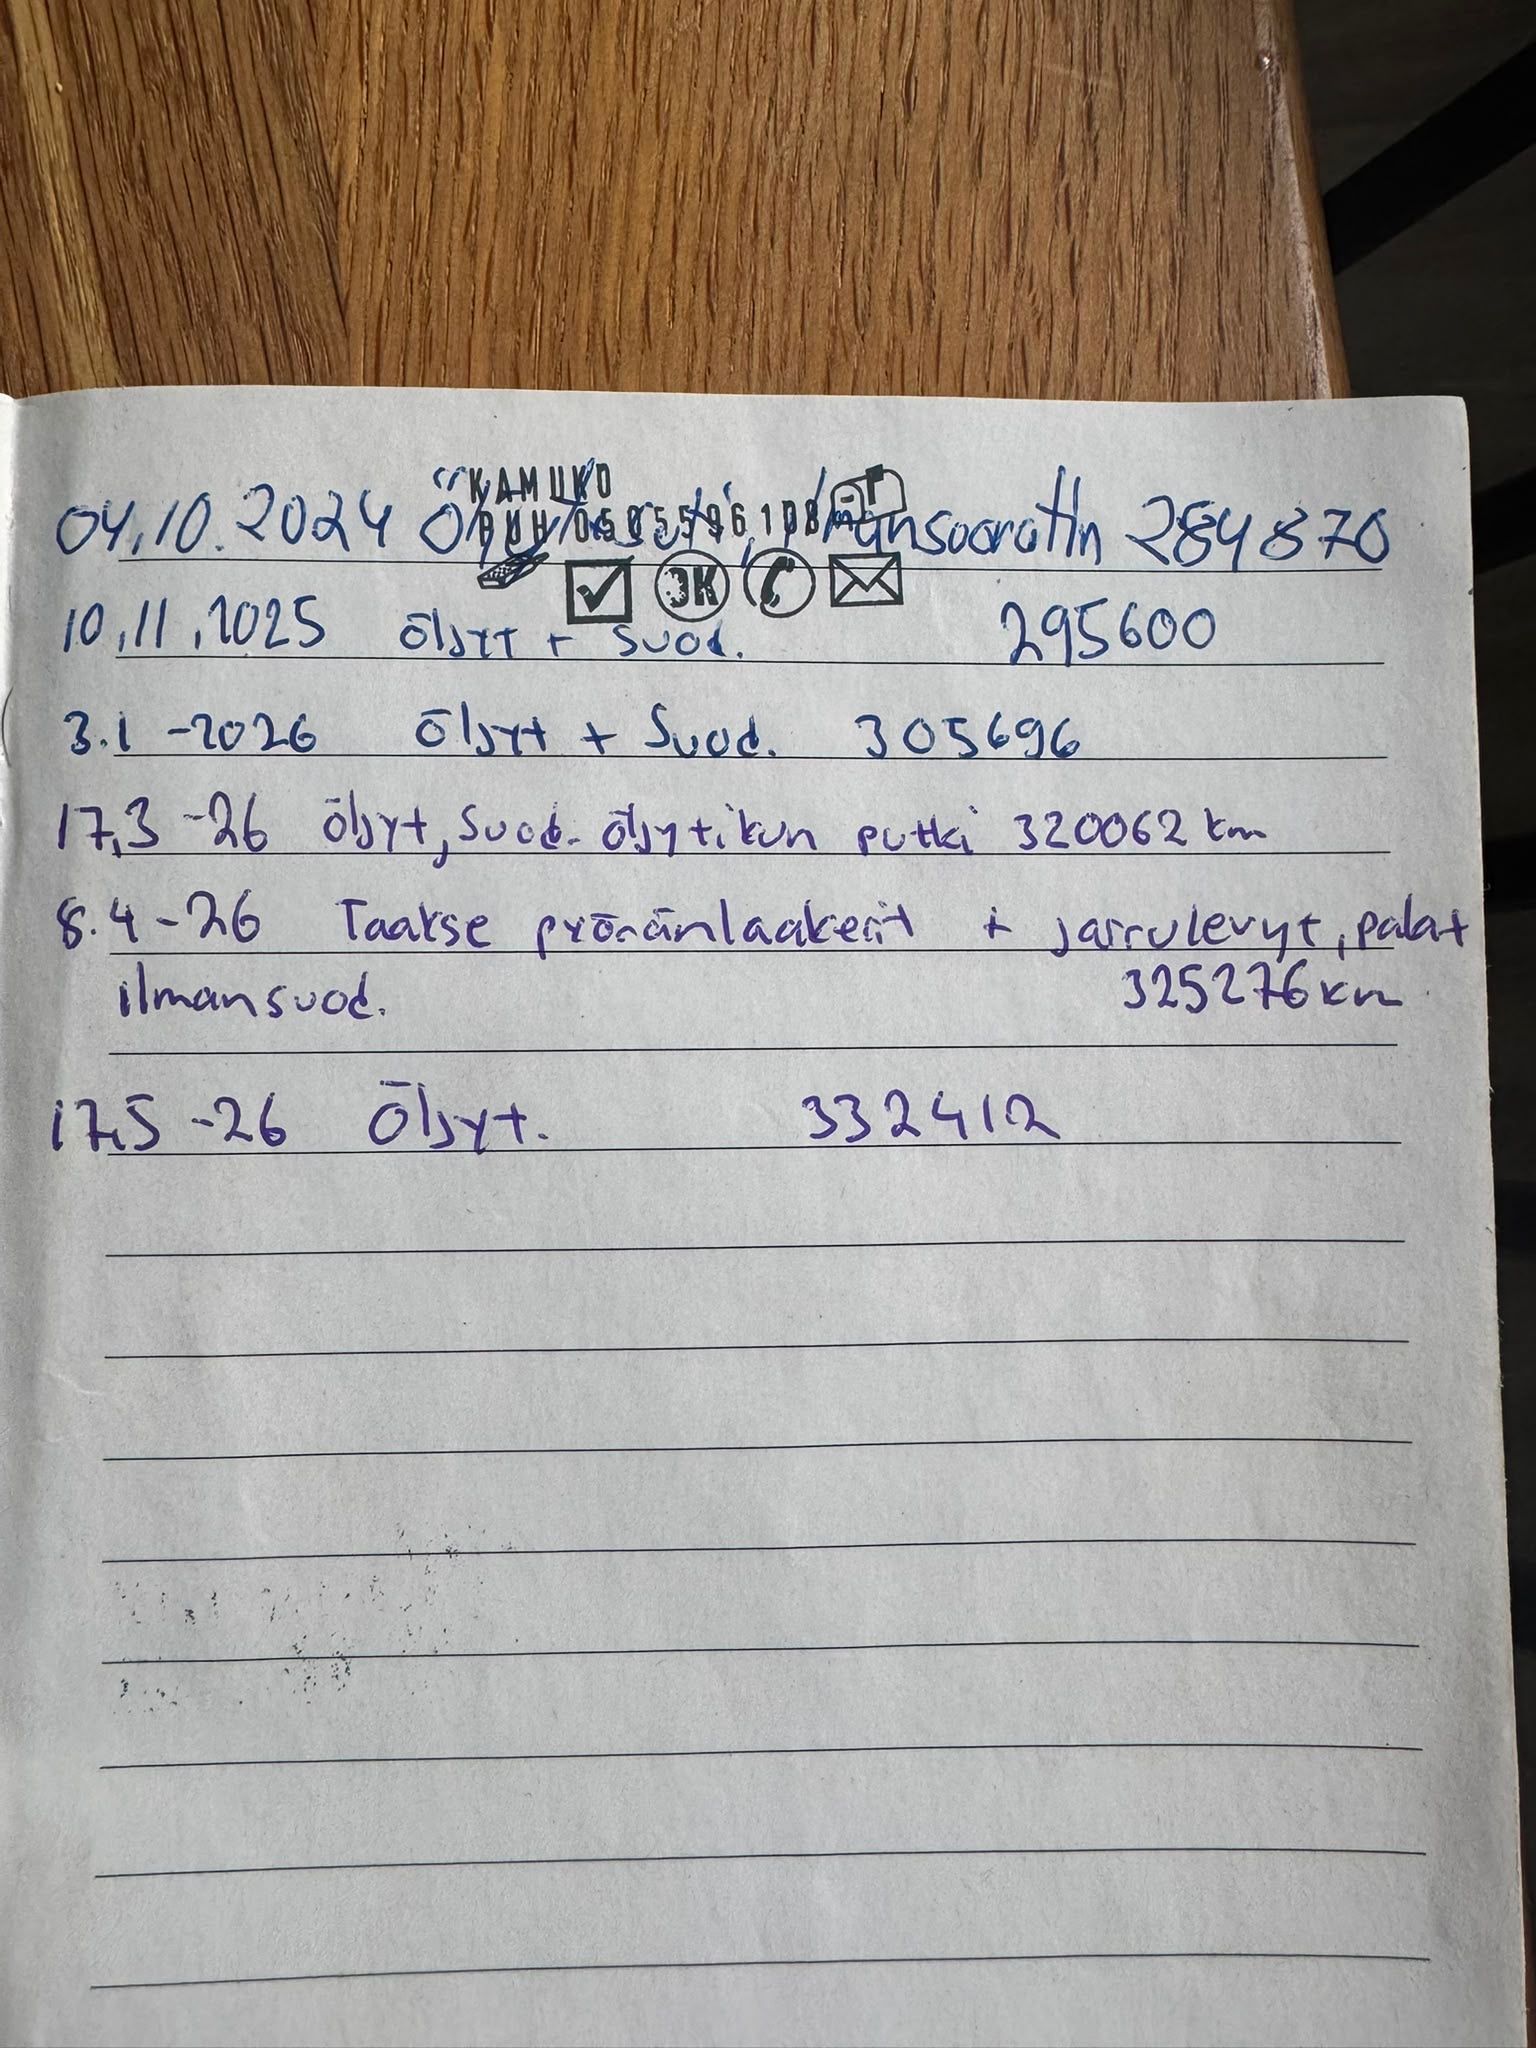 KAMUKO
PUH 0505596108
04.10.2024 284870
OK
10.11.2025 öljyt + suod. 295600
3.1 -2026 öljyt + Suod. 305696
17.3 -26 öljyt, suod. öljytikun putki 320062 km
8.4 -26 Taakse pyöränlaakerit + jarrulevyt, palat
ilmansuod. 325276 km
17.5 -26 Öljyt. 332412